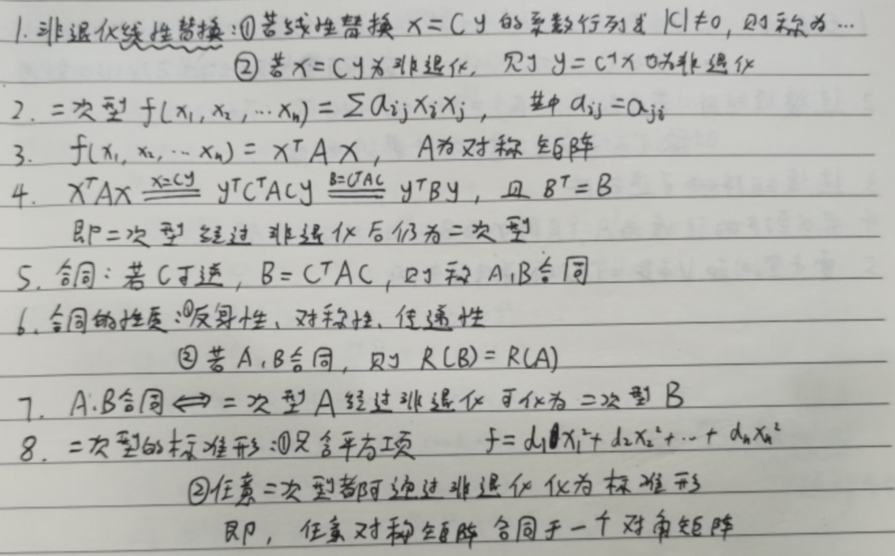 1. 非退化线性替换:①若线性替换 x=Cy 的系数行列式 |C|≠0, 则称为…
②若x=Cy为非退化, 则 y=C⁻¹x 也为非退化
2. 二次型 f(x₁,x₂,…xₙ)=∑aᵢⱼxᵢxⱼ, 其中 aᵢⱼ=aⱼᵢ
3. f(x₁,x₂,…xₙ)=xᵀAx, A为对称矩阵
4. xᵀAx =(x=Cy)= yᵀCᵀACy =(B=CᵀAC)= yᵀBy, 且 Bᵀ=B
即二次型经过非退化后仍为二次型
5. 合同:若C可逆, B=CᵀAC, 则称A,B合同
6. 合同的性质:①反身性、对称性、传递性
②若A,B合同, 则 R(B)=R(A)
7. A,B合同⟺二次型A经过非退化可化为二次型B
8. 二次型的标准形:①只含平方项 f=d₁x₁²+d₂x₂²+…+dₙxₙ²
②任意二次型都可通过非退化化为标准形
即, 任意对称矩阵合同于一个对角矩阵